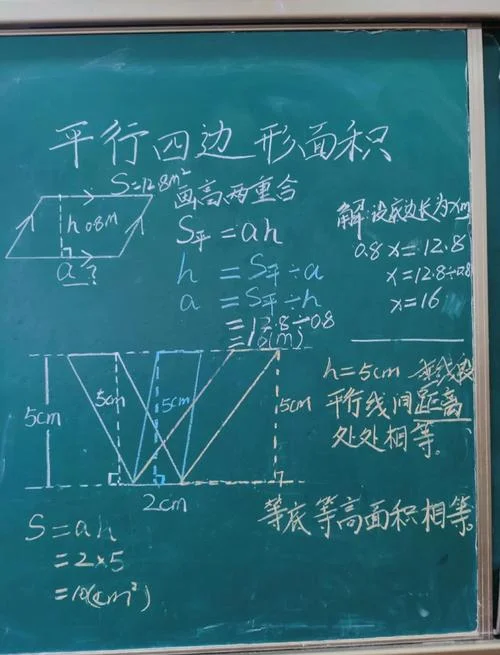 平行四边形面积
S=12.8m²
h 0.8m
a?
画高两重合
S平=ah
h=S平÷a
a=S平÷h
=12.8÷0.8
=16(m)
解设底边长为xm
0.8x=12.8
x=12.8÷0.8
x=16
5cm
5cm
5cm
5cm
2cm
h=5cm 垂线段
平行线间距离
处处相等。
等底等高面积相等。
S=ah
=2×5
=10(cm²)